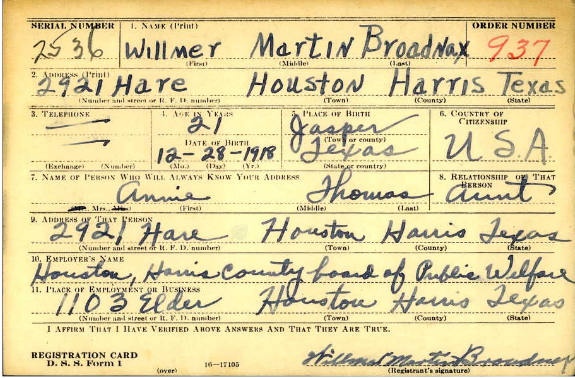 SERIAL NUMBER 1. NAME (Print) ORDER NUMBER
2536 Willmer Martin Broadnax 937
(First) (Middle) (Last)
2. ADDRESS (Print)
2921 Hare Houston Harris Texas
(Number and street or R. F. D. number) (Town) (County) (State)
3. TELEPHONE 4. AGE IN YEARS 5. PLACE OF BIRTH 6. COUNTRY OF CITIZENSHIP
21 Jasper
(Town or county)
DATE OF BIRTH
12-28-1918 Texas USA
(Exchange) (Number) (Mo.) (Day) (Yr.) (State or country)
7. NAME OF PERSON WHO WILL ALWAYS KNOW YOUR ADDRESS 8. RELATIONSHIP OF THAT PERSON
Annie Thomas Aunt
Mrs. (First) (Middle) (Last)
9. ADDRESS OF THAT PERSON
2921 Hare Houston Harris Texas
(Number and street or R. F. D. number) (Town) (County) (State)
10. EMPLOYER'S NAME
Houston, Harris County board of Public Welfare
11. PLACE OF EMPLOYMENT OR BUSINESS
1103 Elder Houston Harris Texas
(Number and street or R. F. D. number) (Town) (County) (State)
I AFFIRM THAT I HAVE VERIFIED ABOVE ANSWERS AND THAT THEY ARE TRUE.
REGISTRATION CARD
D. S. S. Form 1 16—17105 Willmer Martin Broadnax
(over) (Registrant's signature)